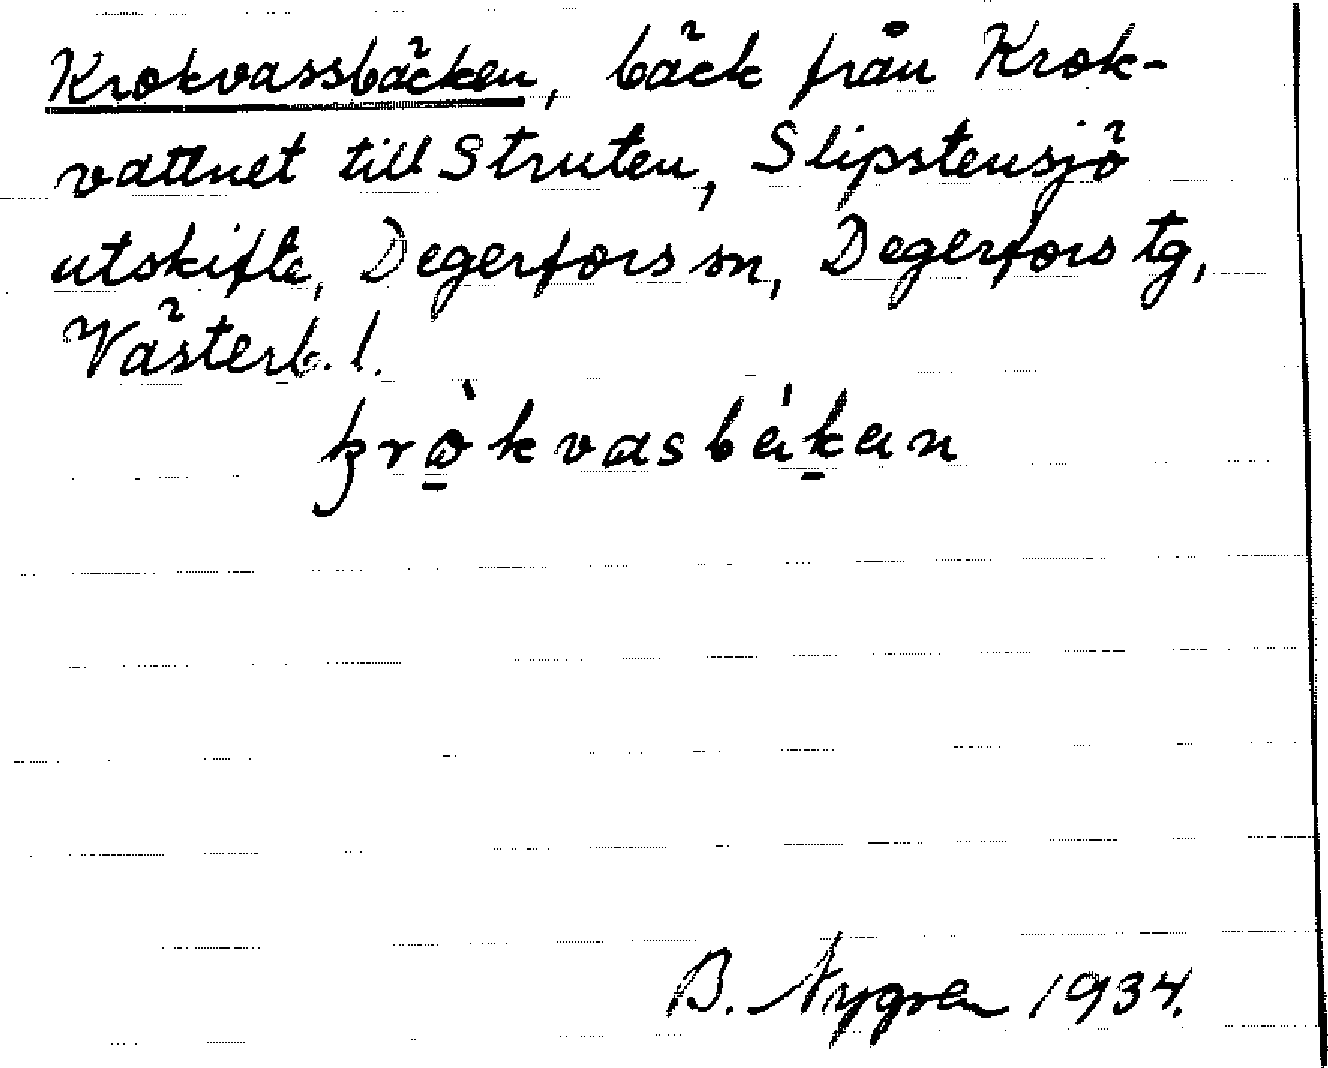 Krokvassbäcken, bäck från Krok-
vattnet till Struten, Slipstensjö
utskifte, Degerfors sn, Degerfors tg,
Västerb. l.
krò̱kvasbáḵan
B. Nygren 1934.